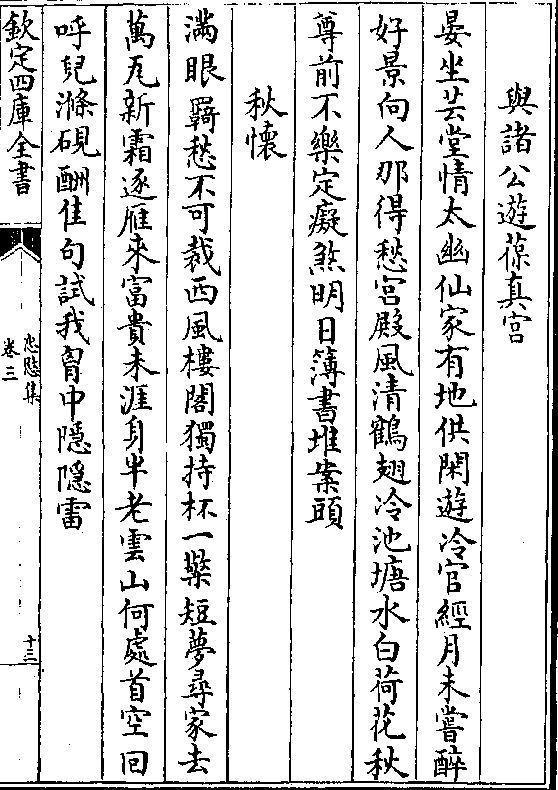 與諸公遊葆真宫
晏坐芸堂情太幽仙家有地供閑遊冷官經月未嘗醉
好景向人那得愁宫殿風清鶴翅冷池塘水白荷花秋
尊前不樂定癡煞明日簿書堆案頭
秋懷
滿眼羇愁不可裁西風樓閣獨持杯一檠短夢尋家去
萬瓦新霜逐雁来富貴未涯身半老雲山何處首空回
呼兒滌硯酬佳句試我胷中隱隱雷
欽定四庫全書
忠愍集
卷三
十三